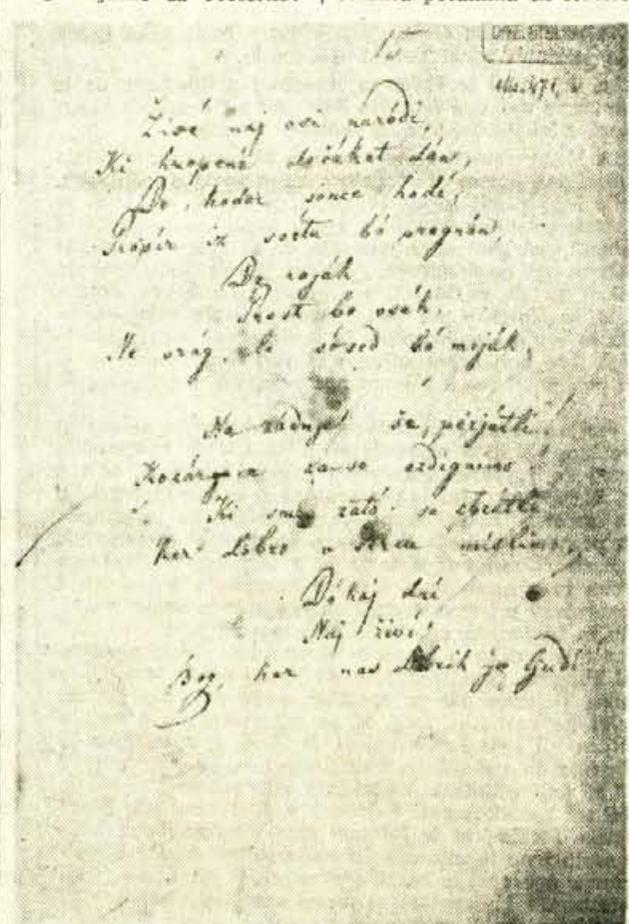 Živé naj vsi naródi,
Ki hrepené dočakat dán,
De, koder sonce hodi,
Prepir iz svéta bó pregnán,
De roják
Prost bo vsák,
Ne vrág, le sósed bó meják,
Na zadnje še, prijátli!
Kozárce za-se vzdignimo
Ki smo zató se zbrátli
Ker dobro v srcu mislimo,
Dókaj dni
Naj živí!
Bog, kar nas dobrih je ljudi!